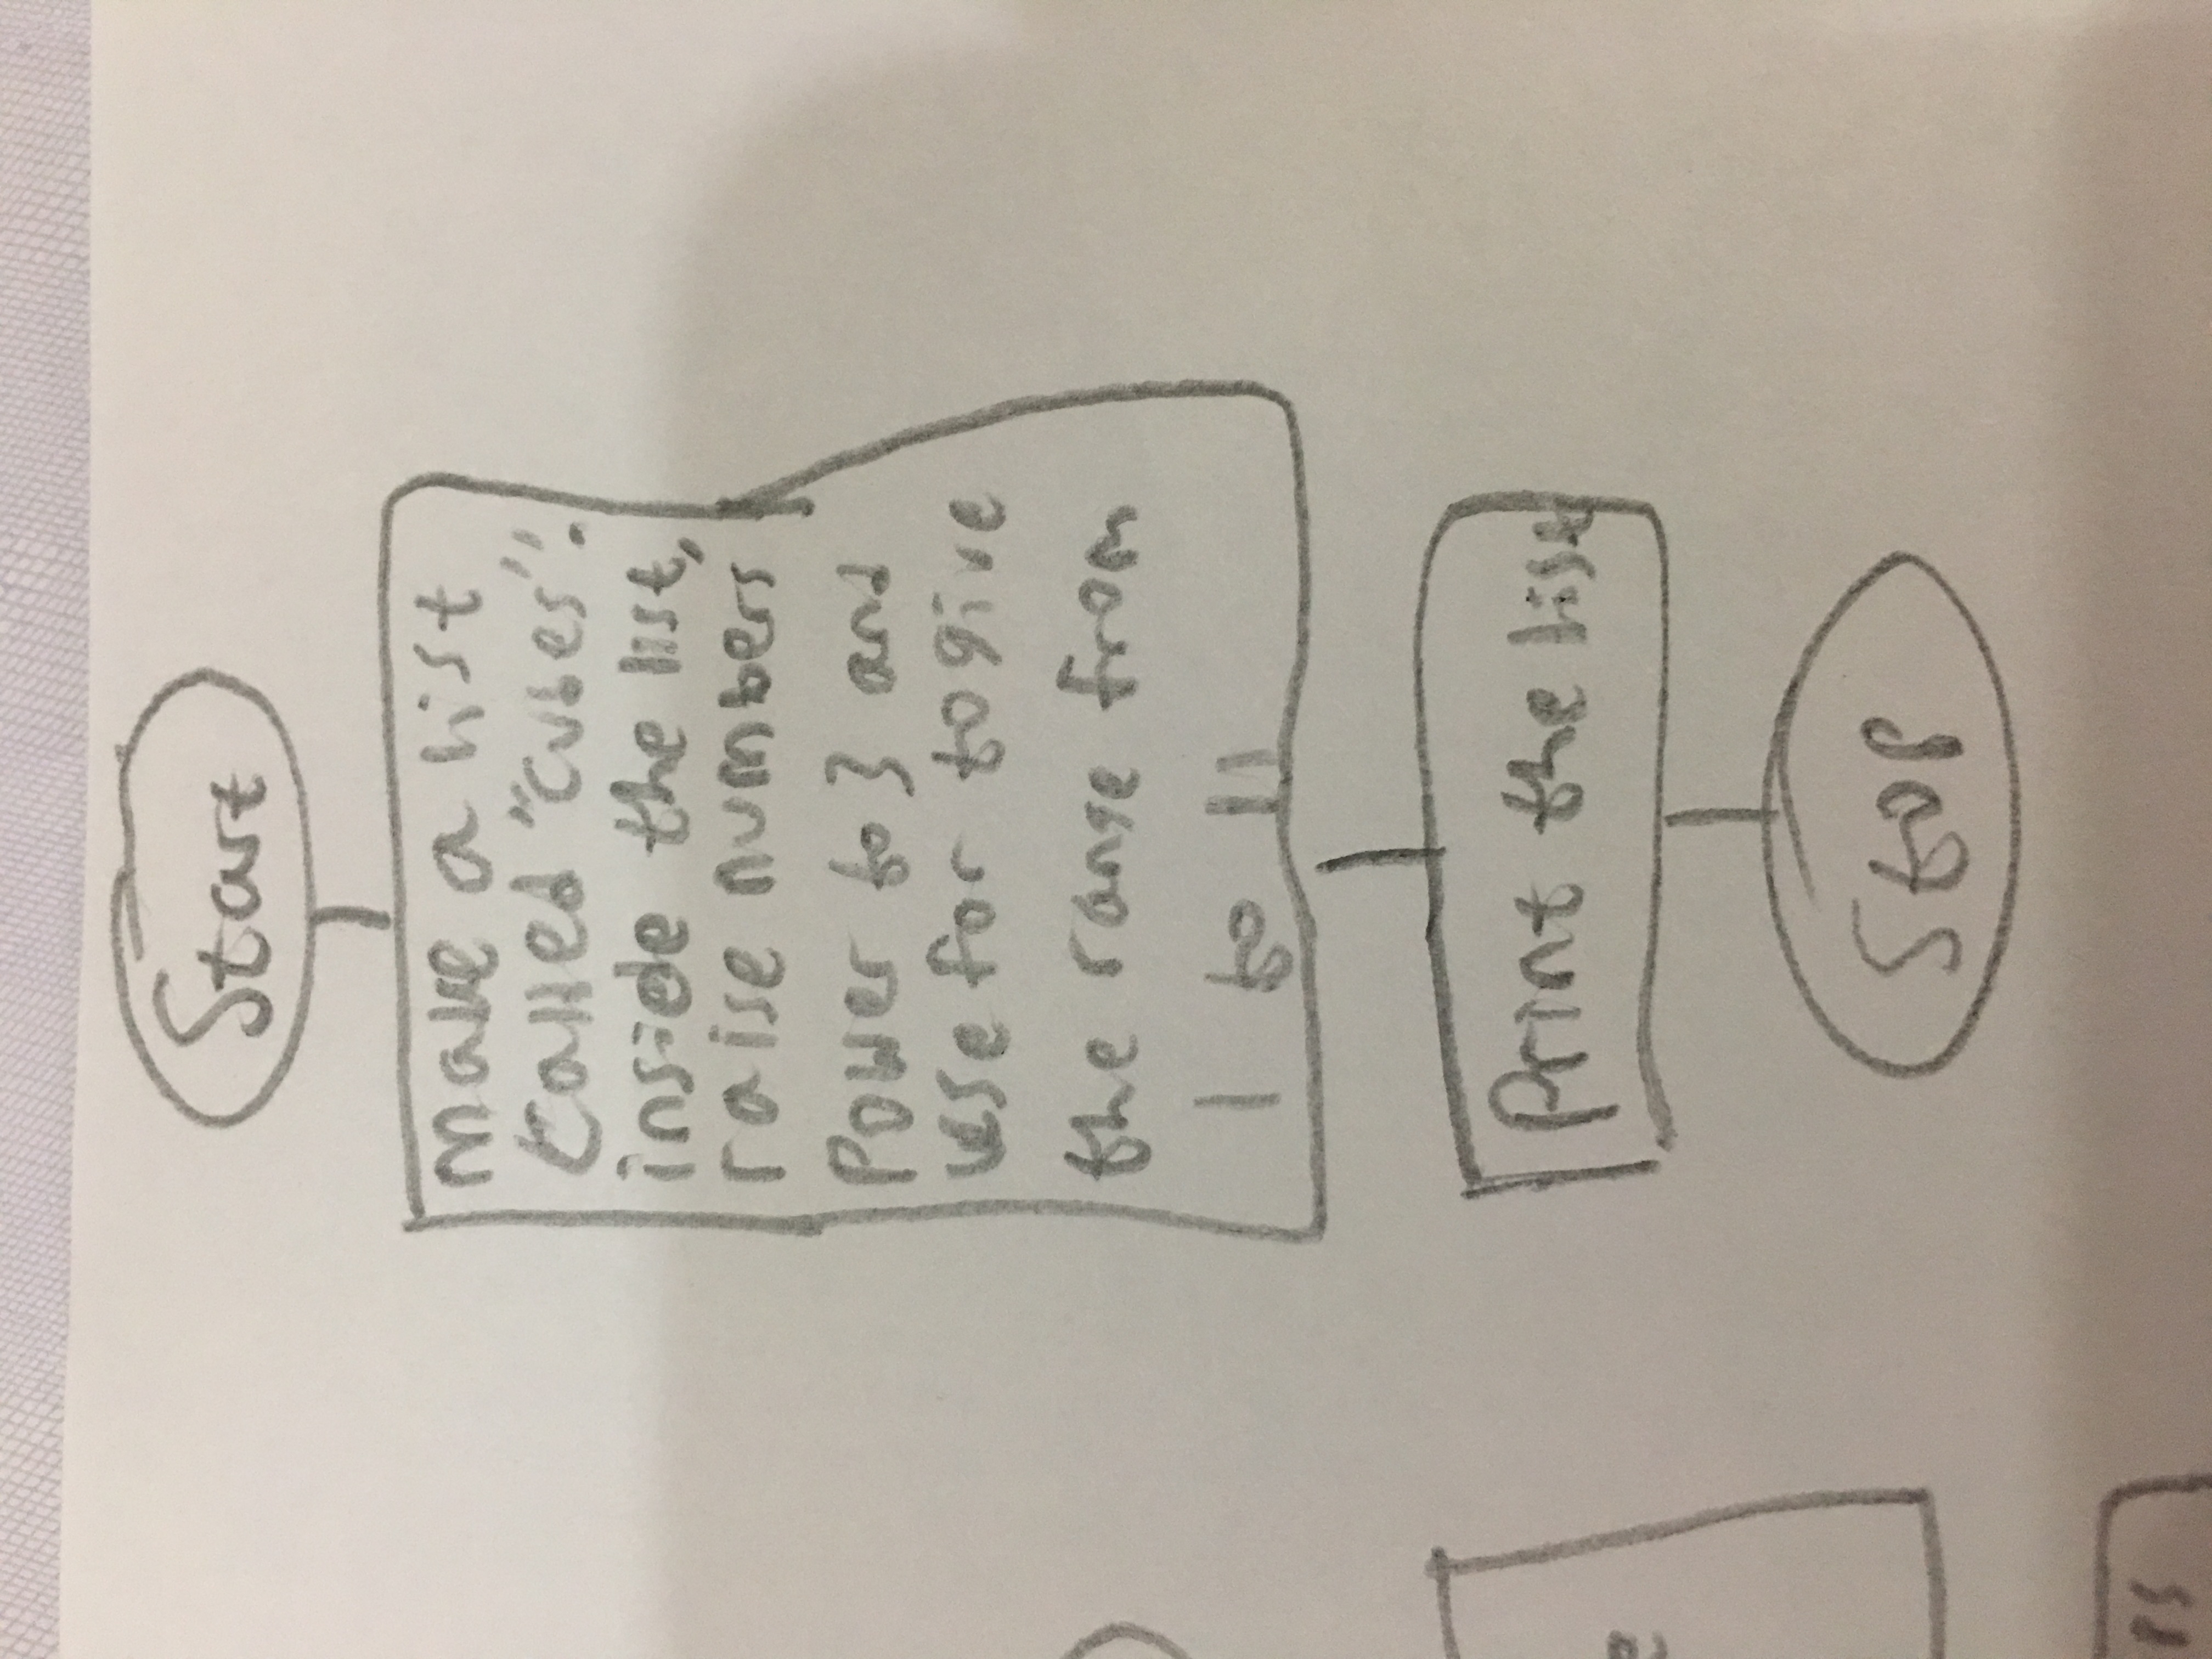 Start
make a list
called "cubes".
inside the list,
raise numbers
Power to 3 and
use for to give
the range from
1 to 11
Print the list
Stop
e
PS